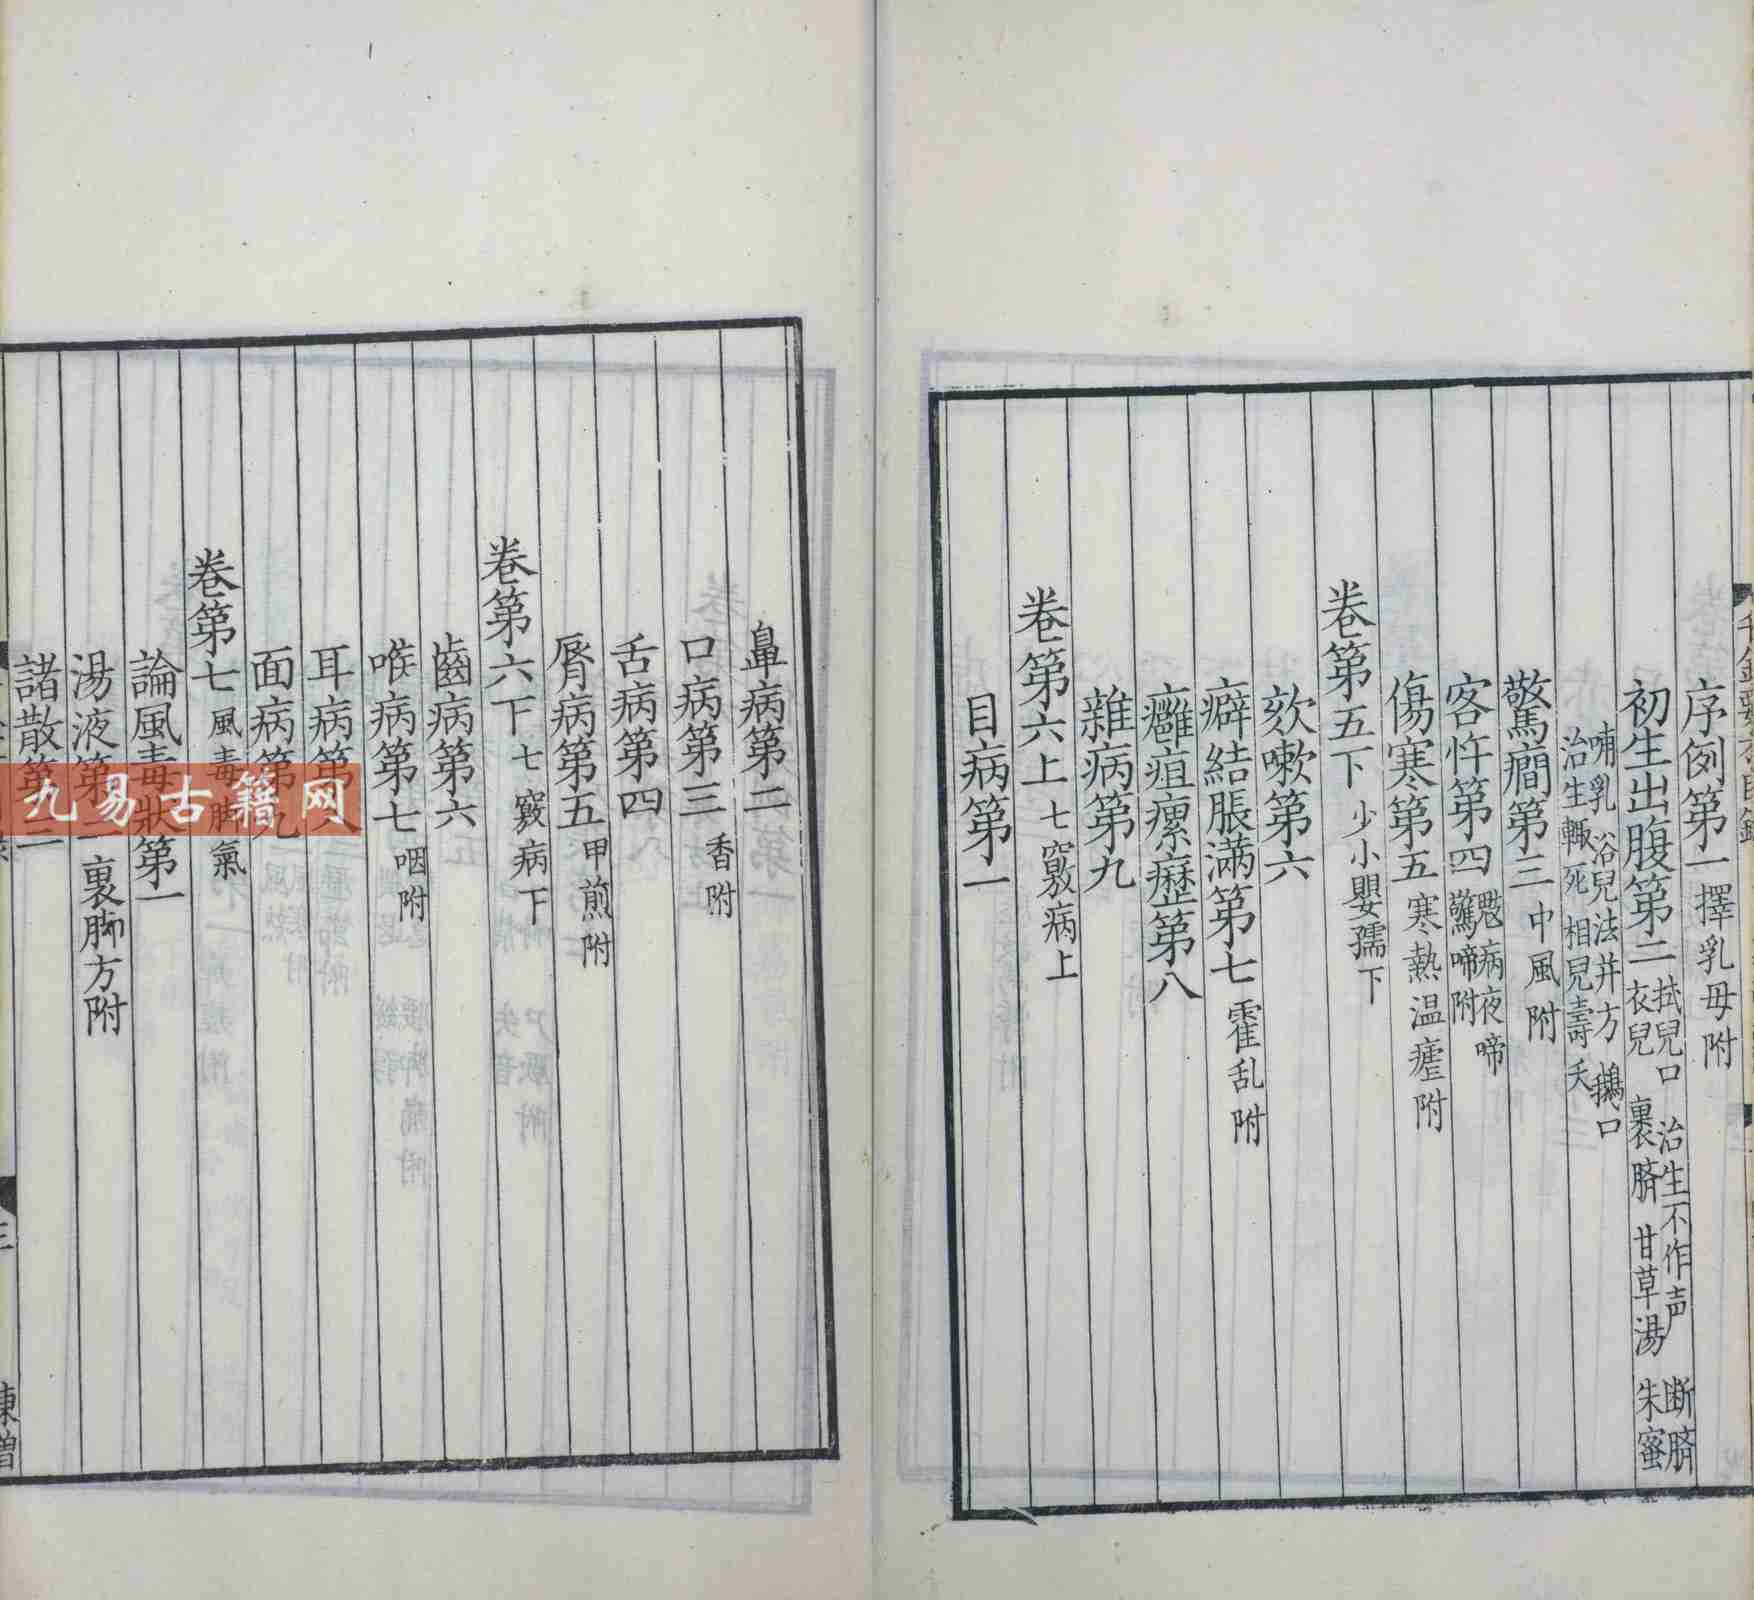 序例第一 擇乳母附
初生出腹第二 拭兒口 治生不作声 断臍
衣兒 裹臍 甘草湯 朱蜜
哺乳 浴兒法并方 鵝口
治生輒死 相兒壽夭
驚癎第三 中風附
客忤第四 魃病夜啼
驚啼附
傷寒第五 寒熱温瘧附
卷第五下 少小嬰孺下
欬嗽第六
癖結脹滿第七 霍乱附
癰疽瘰癧第八
雜病第九
卷第六上 七竅病上
目病第一
鼻病第二
口病第三 香附
舌病第四
脣病第五 甲煎附
卷第六下 七竅病下
齒病第六
喉病第七 咽附
耳病第八
面病第九
卷第七 風毒脚氣
論風毒狀第一
湯液第二 裹脚方附
諸散第三
九易古籍网